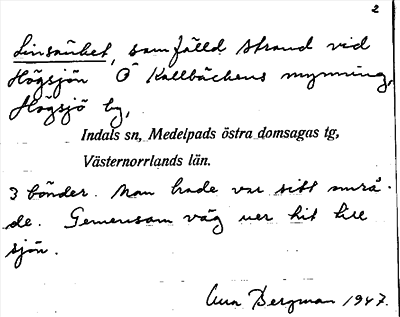 2
Linsänket, samfälld strand vid
Högsjön Ö Kallbäckens mynning,
Högsjö by,
Indals sn, Medelpads östra domsagas tg,
Västernorrlands län.
3 bönder. Man hade var sitt områ-
de. Gemensam väg ner hit till
sjön.
Bergman 1947.